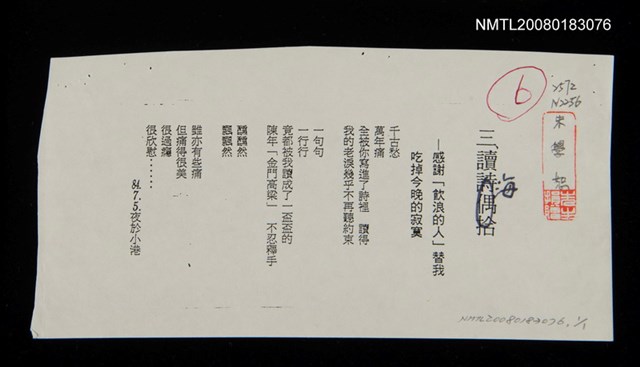 NMTL20080183076
6
三讀詩偶拾
海
—感謝「飲浪的人」替我
吃掉今晚的寂寞
千古愁
萬年痛
全被你寫進了詩裡 讀得
我的老淚幾乎不再聽約束
一句句
一行行
竟都被我讀成了一盃盃的
陳年「金門高粱」 不忍釋手
醺醺然
飄飄然
雖亦有些痛
但痛得很美
很過癮
很欣慰⋯⋯
84.7.5.夜於小港
NMTL20080183076, 1/1